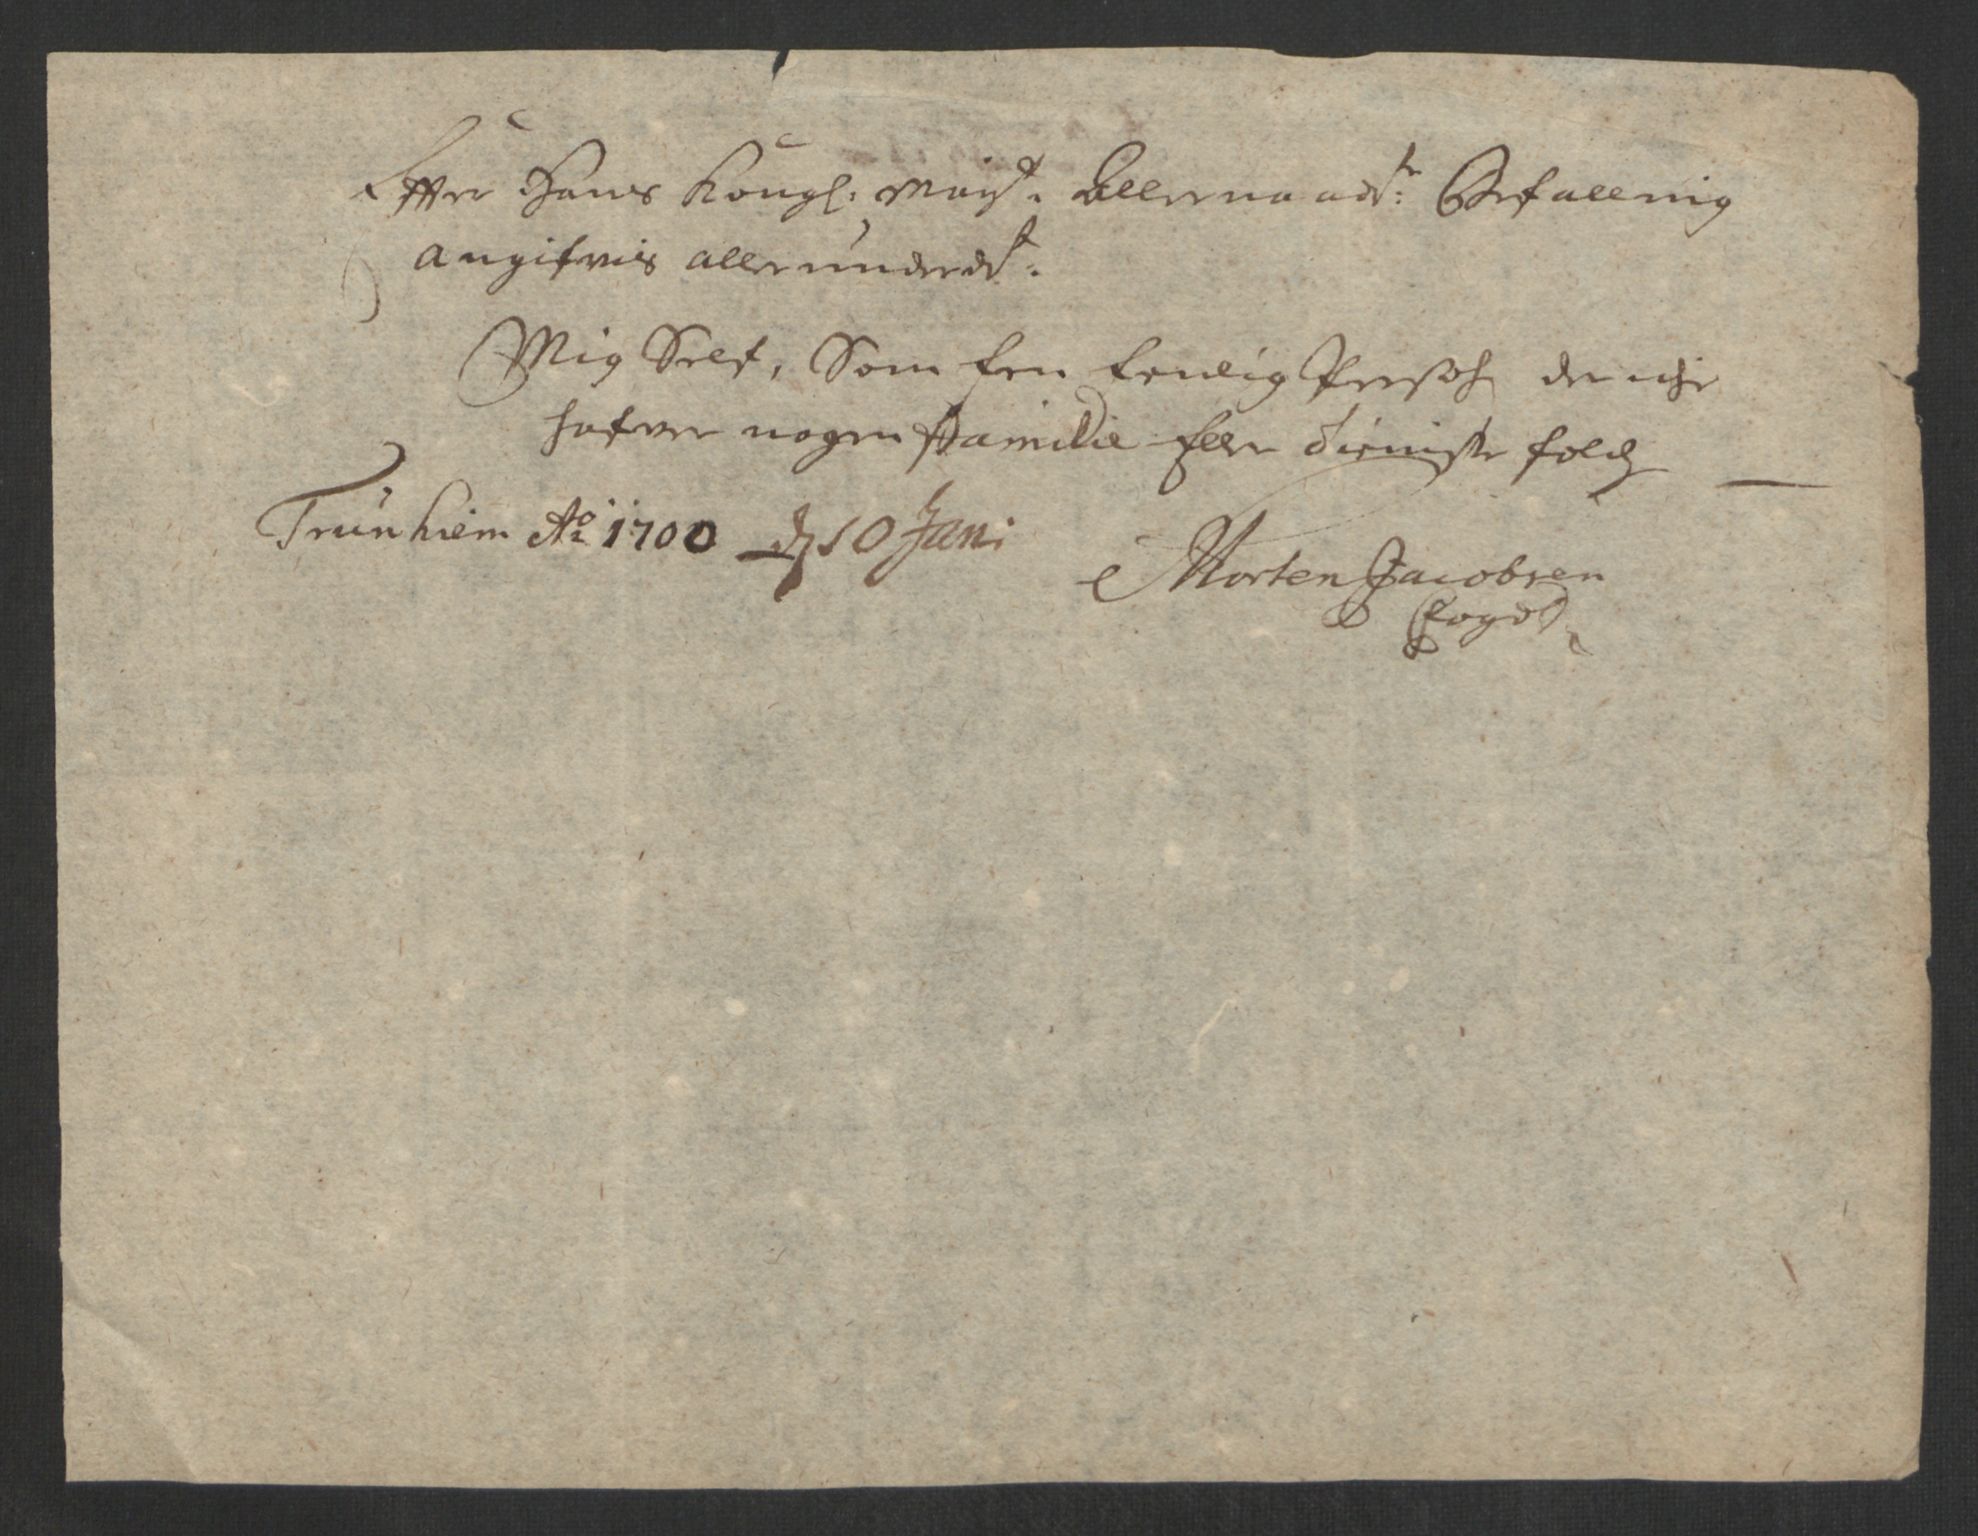 Effter Hans Kongl: Mayt. Allernaadste: Befallning
angifvis allerunderdst:
Mig Self, Som Een Eenlig Persohn der iche
hafver nogen Familie Eller tieniste folch
Trünhiem Ao 1700 d 10 Jani:
Morten Jacobsen
Fogd